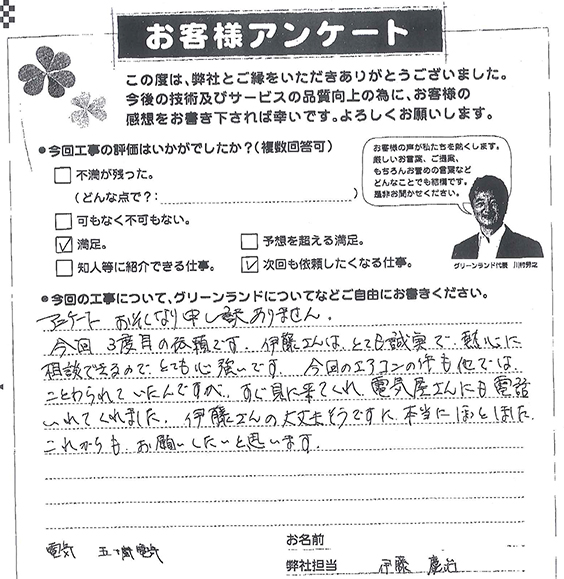 お客様アンケート
この度は、弊社とご縁をいただきありがとうございました。
今後の技術及びサービスの品質向上の為に、お客様の
感想をお書き下されば幸いです。よろしくお願いします。
●今回工事の評価はいかがでしたか?(複数回答可)
不満が残った。
(どんな点で?:
可もなく不可もない。
満足。
予想を超える満足。
知人等に紹介できる仕事。
次回も依頼したくなる仕事。
お客様の声が私たちを動くします。
厳しいお言葉、ご提案、
もちろんお誉めの言葉など
どんなことでも結構です。
是非お聞かせください。
グリーンランド代表
●今回の工事について、グリーンランドについてなどご自由にお書きください。
アンケートおそくなり申し訳ありません。
今回3度目の依頼です。伊藤さんは、とても誠実で、熱心に
相談できるので、とても心強いです。今回のエアコンの件も他では
ことわられていたんですが、すぐ見に来てくれ、電気屋さんにも電話
いれてくれました。伊藤さんの大丈夫そうですに、本当にほっとしました。
これからも、お願いしたいと思います。
お名前
電気 五 電気
弊社担当 伊藤